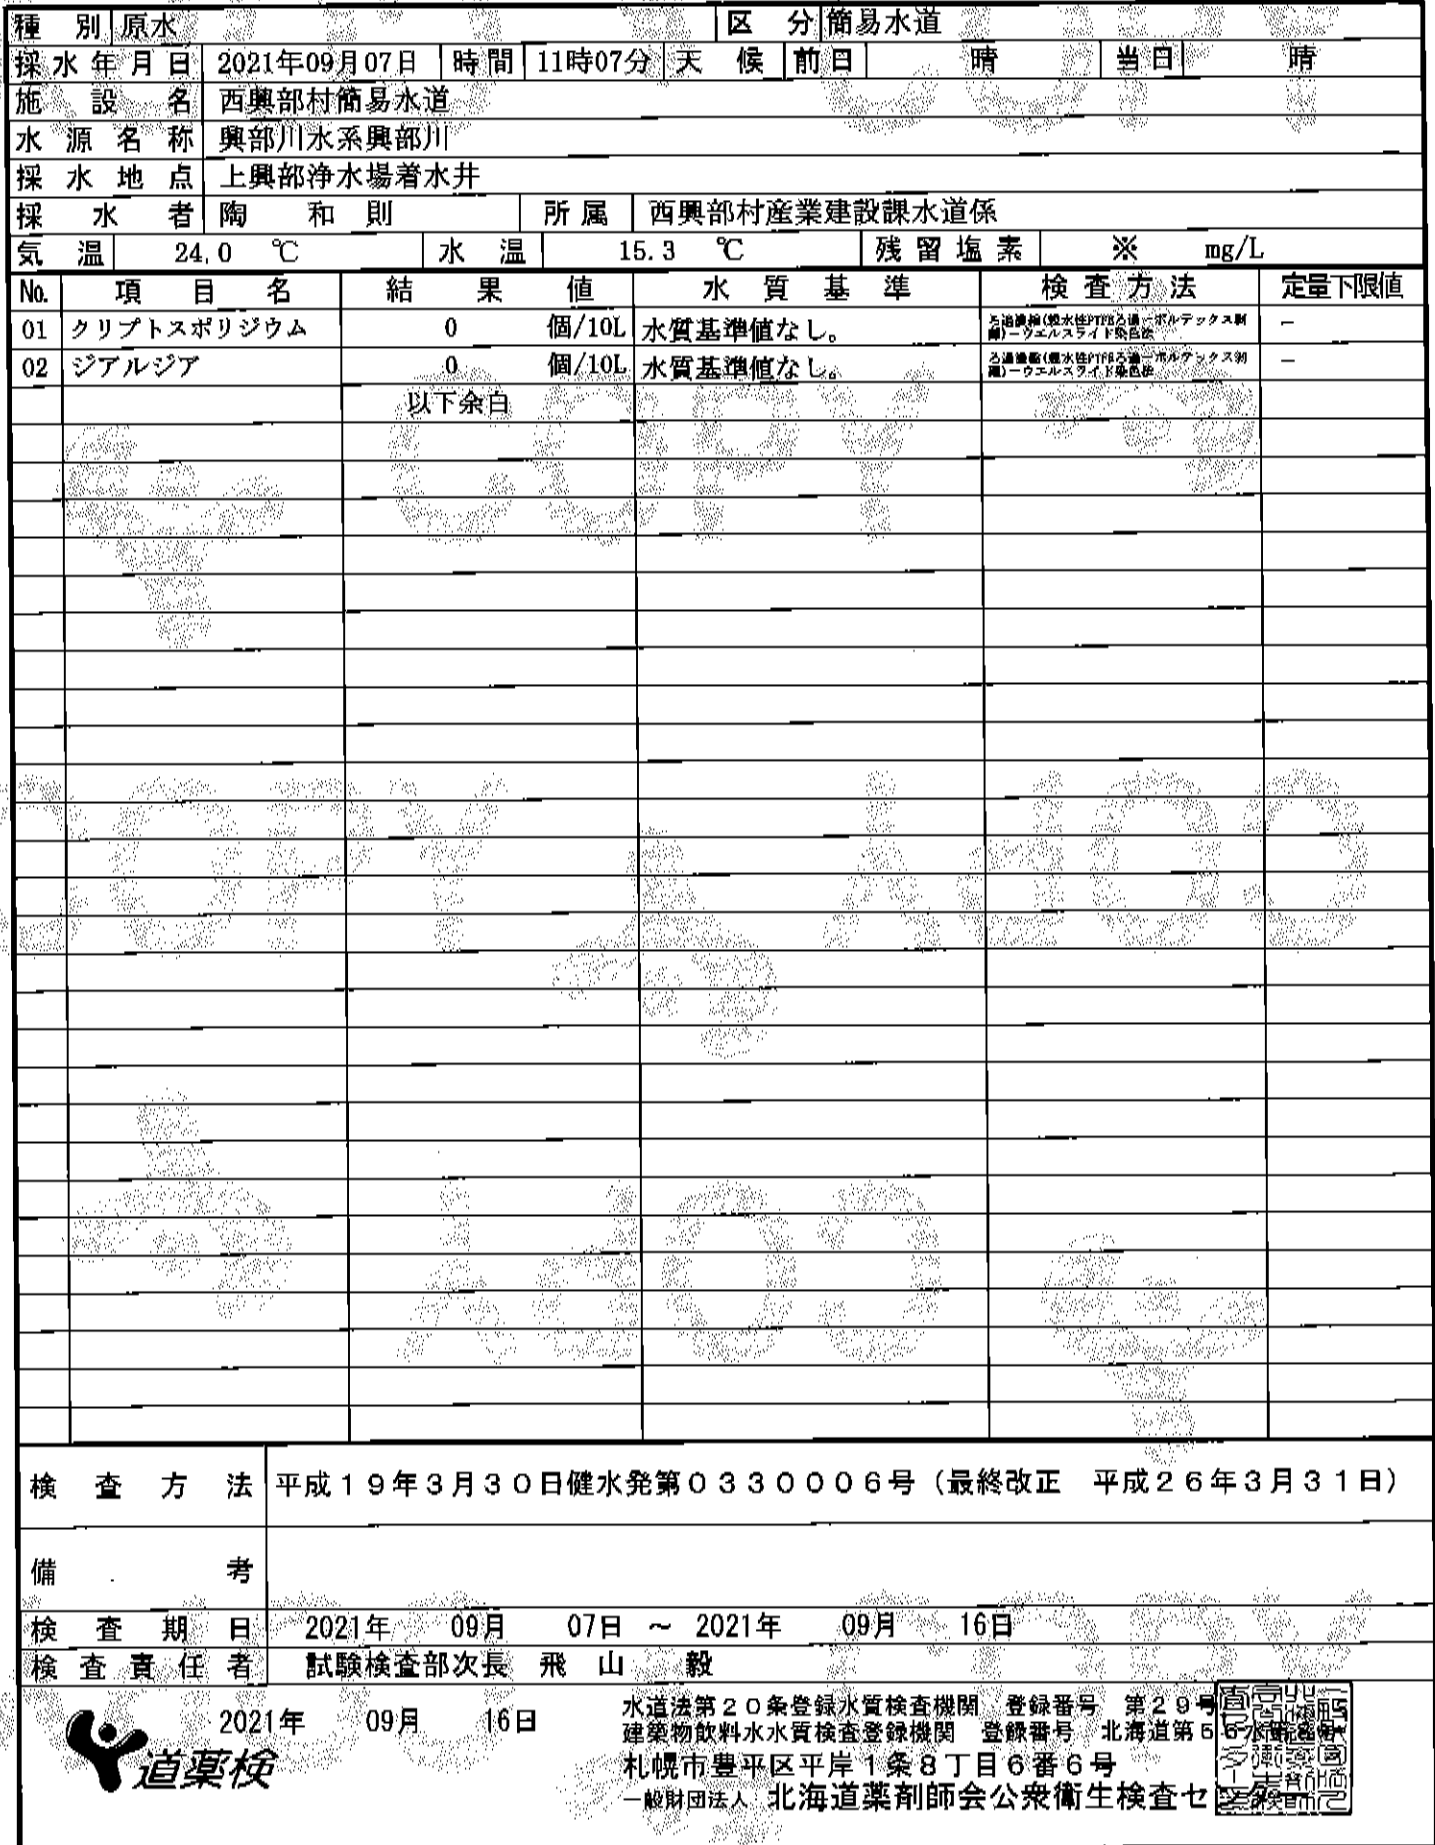 種別 原水 区分 簡易水道
採水年月日 2021年09月07日 時間 11時07分 天候 前日 晴 当日 晴
施設名 西興部村簡易水道
水源名称 興部川水系興部川
採水地点 上興部浄水場着水井
採水者 陶 和則 所属 西興部村産業建設課水道係
気温 24.0 ℃ 水温 15.3 ℃ 残留塩素 ※ mg/L
No. 項目名 結果値 水質基準 検査方法 定量下限値
01 クリプトスポリジウム 0 個/10L 水質基準値なし。 －
02 ジアルジア 0 個/10L 水質基準値なし。 －
以下余白
検査方法 平成19年3月30日健水発第0330006号（最終改正 平成26年3月31日）
備考
検査期日 2021年 09月 07日 ～ 2021年 09月 16日
検査責任者 試験検査部次長 飛山 毅
2021年 09月 16日
道薬検
水道法第20条登録水質検査機関 登録番号 第29号
建築物飲料水水質検査登録機関 登録番号 北海道第56水
札幌市豊平区平岸1条8丁目6番6号
一般財団法人 北海道薬剤師会公衆衛生検査セ
COPY
COPY
COPY
COPY
COPY